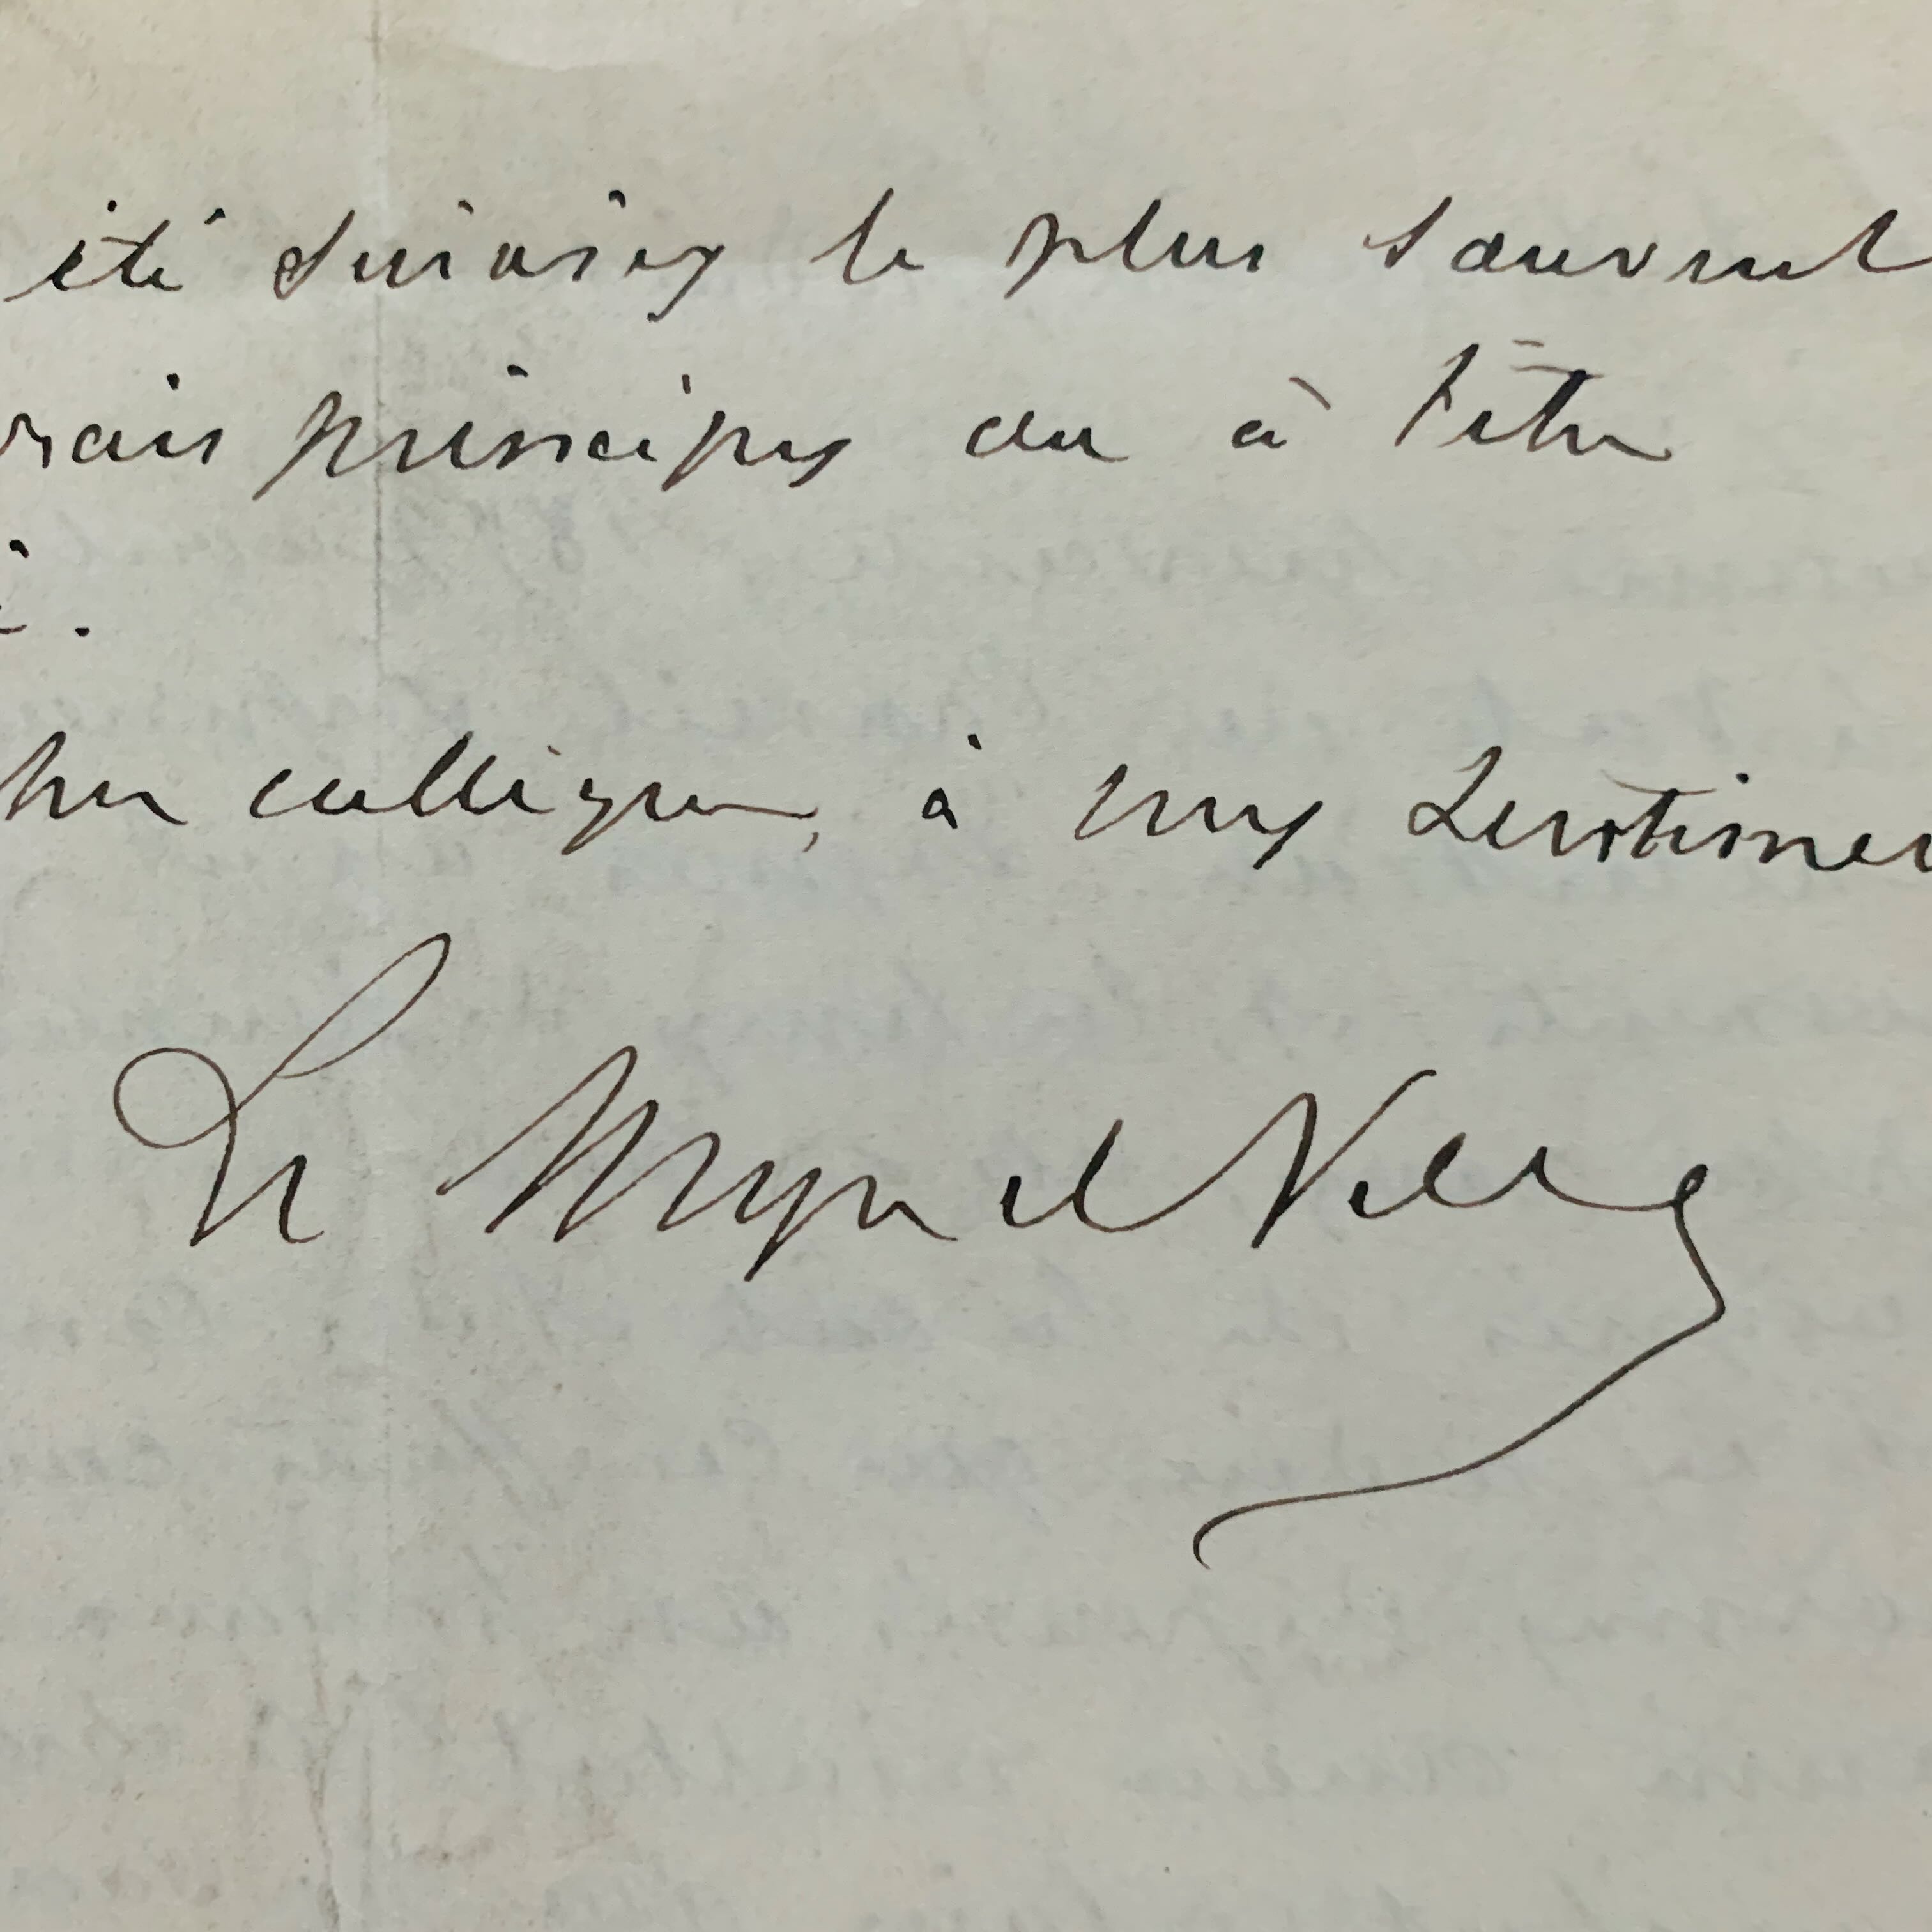 été suivies le plus souvent
rais principes ou à l'être
é.
her collègue, à mes sentimen
Le Myre de Vilers